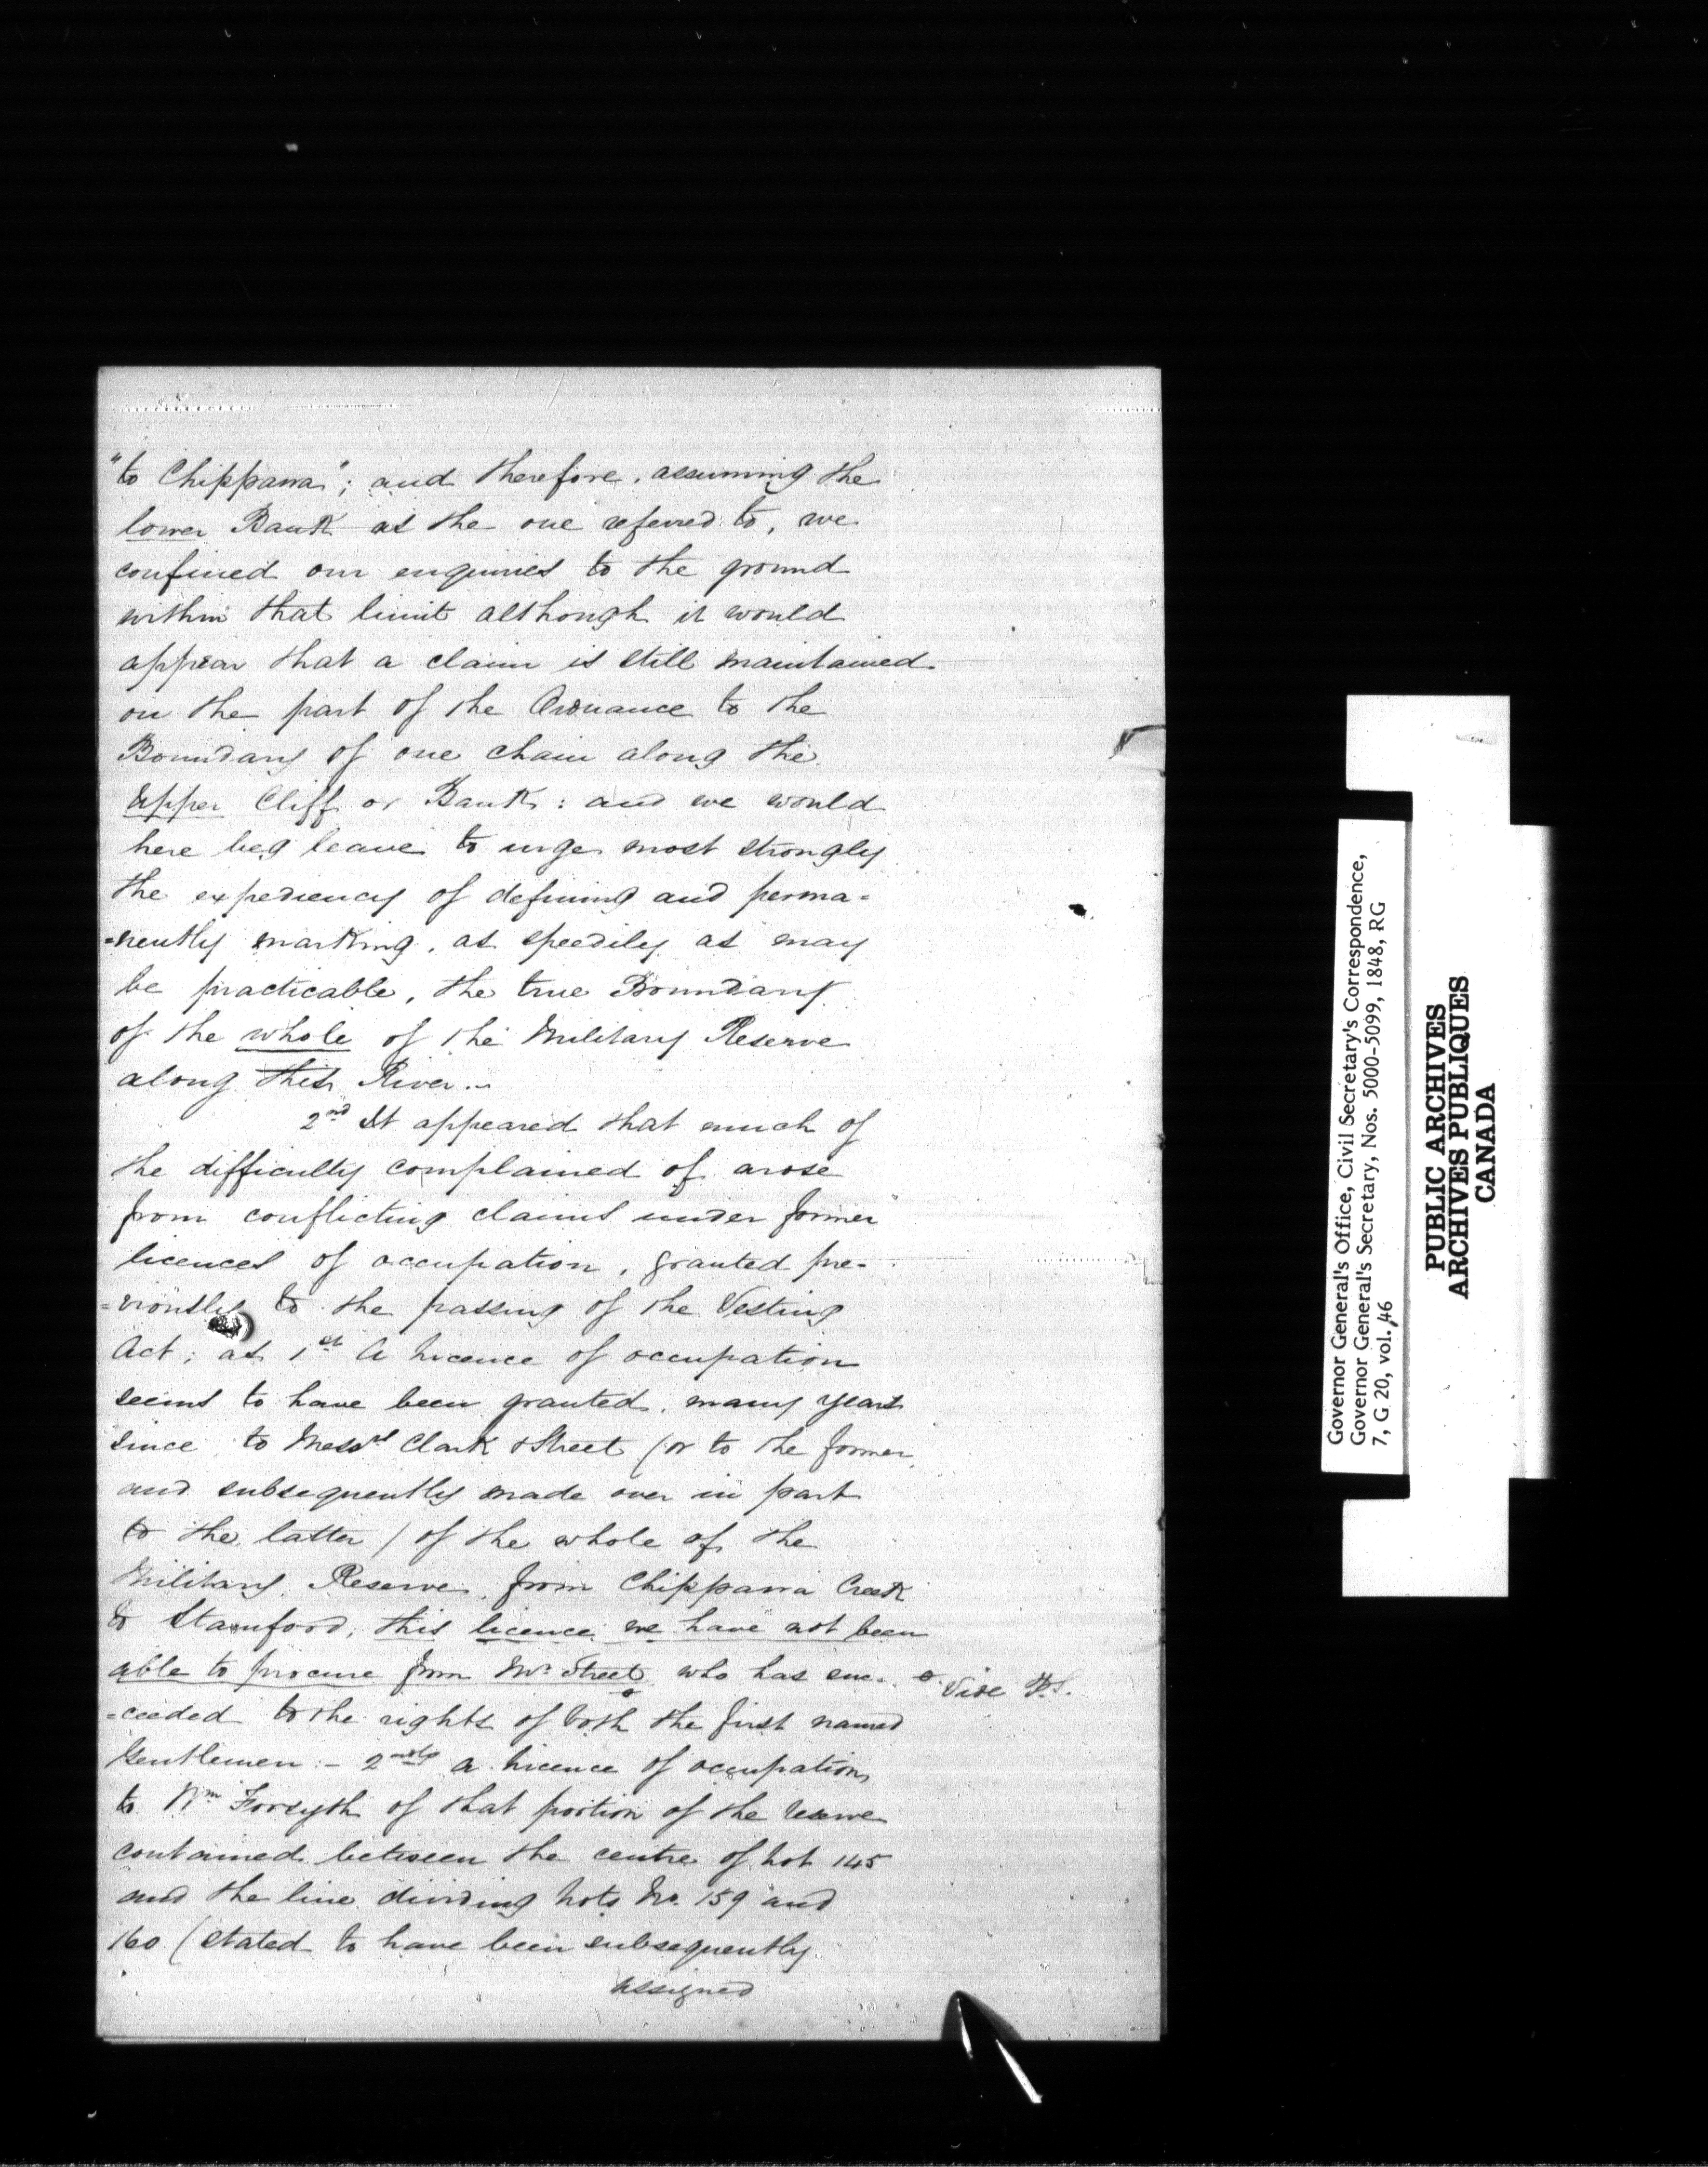 "to Chippawa"; and therefore, assuming the
lower Bank as the one referred to, we
confined our enquiries to the ground
within that limit although it would
appear that a claim is still maintained
on the part of the Ordnance to the
Boundary of one chain along the
Upper Cliff or Bank: and we would
here beg leave to urge most strongly
the expediency of defining and perma=
=nently marking, as speedily as may
be practicable, the true Boundary
of the whole of the Military Reserve
along this River.
2nd It appeared that much of
the difficulty complained of arose
from conflicting claims under former
licences of occupation, granted pre=
=viously to the passing of the Vesting
Act; as 1st A Licence of occupation
seems to have been granted, many years
since, to Messrs Clark & Street (or to the former,
and subsequently made over in part
to the latter) of the whole of the
Military Reserve, from Chippawa Creek
to Stamford; this licence we have not been
able to procure from Mr Street who has suc=
Vide P.S.
=ceeded to the rights of both the first named
Gentlemen:- 2ndly a Licence of occupation
to Wm Forsyth of that portion of the reserve
contained between the centre of Lot 145
and the line dividing Lots No. 159 and
160 (stated to have been subsequently
assigned
Governor General's Office, Civil Secretary's Correspondence,
Governor General's Secretary, Nos. 5000-5099, 1848, RG
7, G 20, vol. 46
PUBLIC ARCHIVES
ARCHIVES PUBLIQUES
CANADA